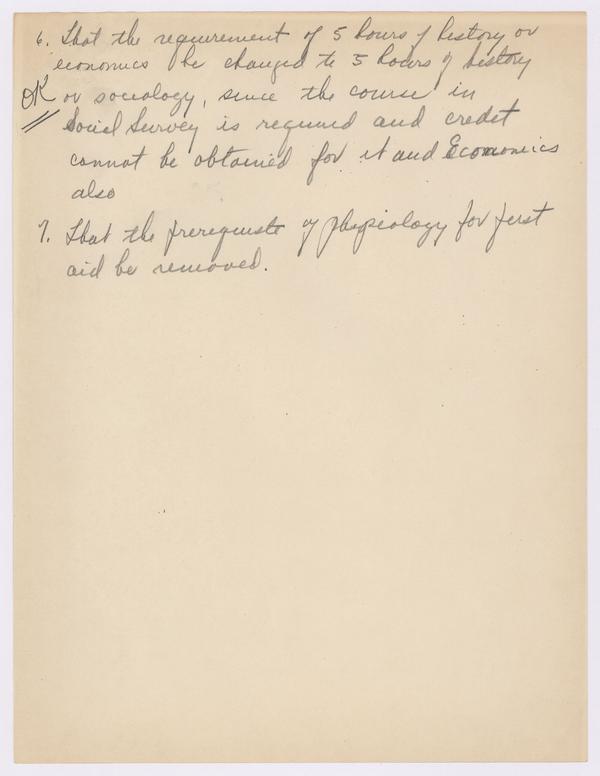 6. That the requirement of 5 hours of history or
economics be changed to 5 hours of history
OK or sociology, since the course in
Social Survey is required and credit
cannot be obtained for it and Economics
also
7. That the prerequisite of physiology for first
aid be removed.